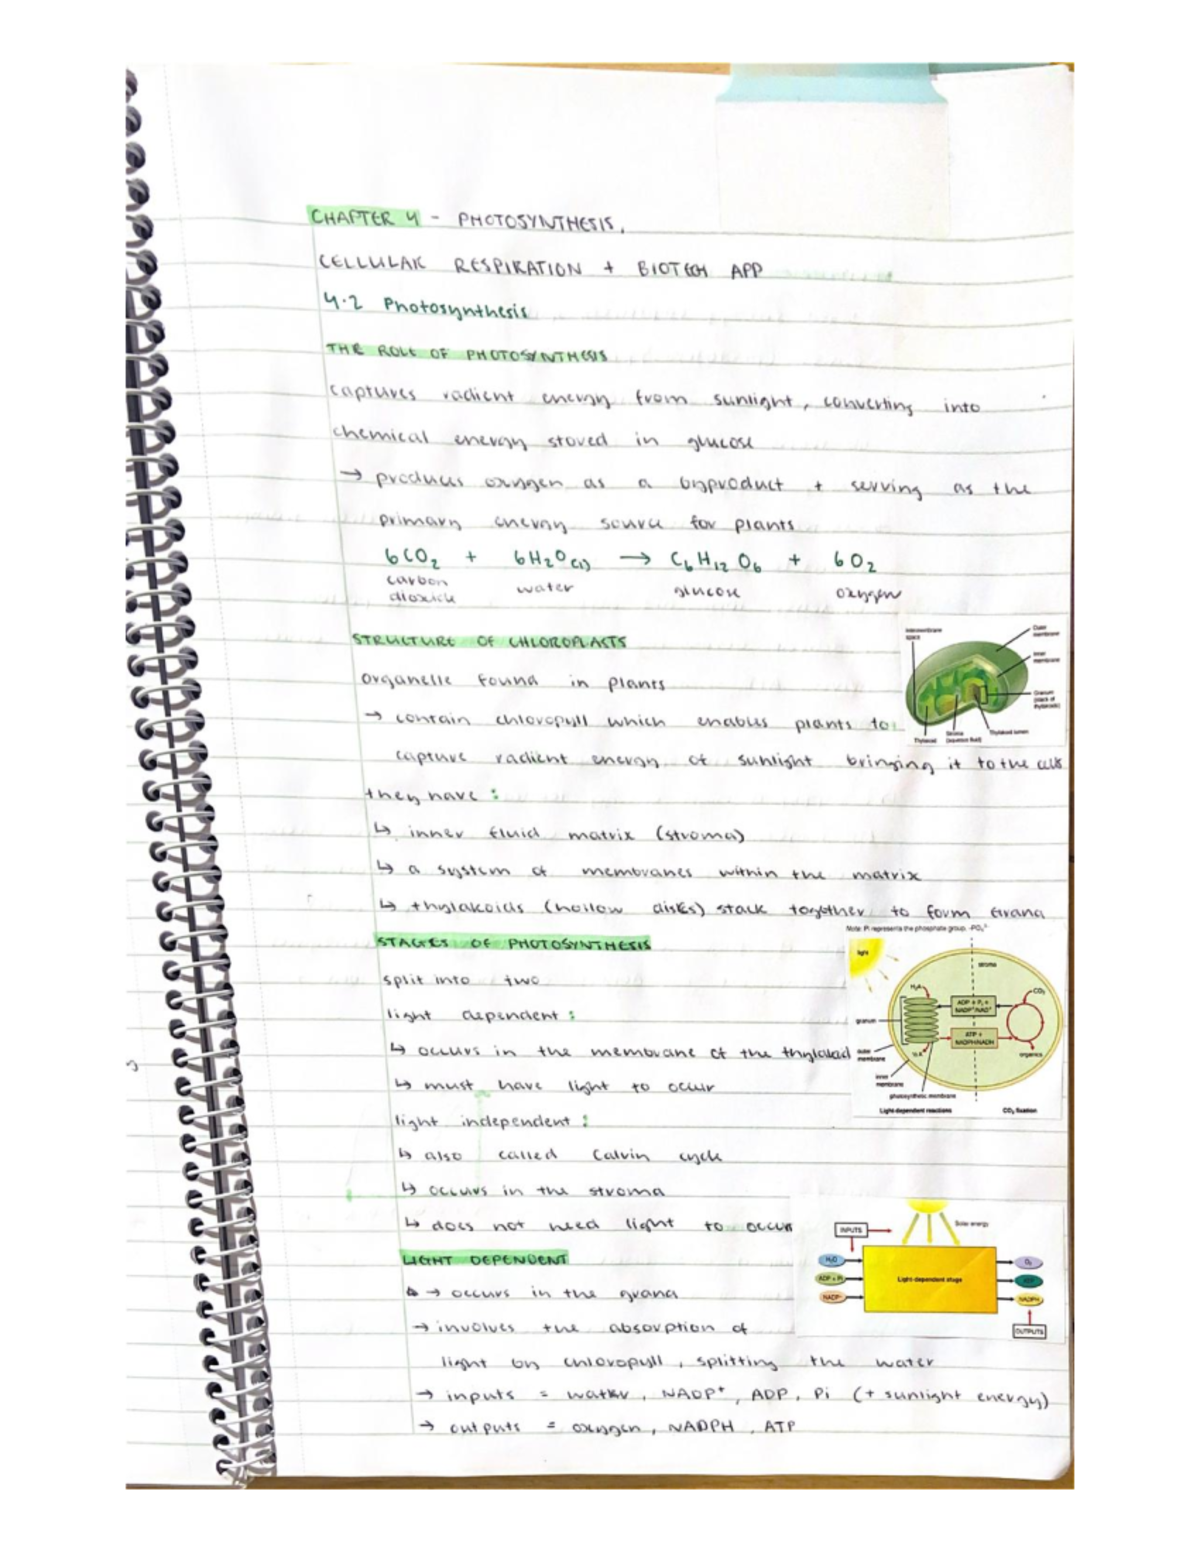 CHAPTER 4 - PHOTOSYNTHESIS,
CELLULAR RESPIRATION + BIOTECH APP
4.2 Photosynthesis
THE ROLE OF PHOTOSYNTHESIS
captures radient energy from sunlight, converting into
chemical energy stored in glucose
→ produces oxygen as a byproduct + serving as the
primary energy source for plants
6CO₂ + 6H₂O(l) → C₆H₁₂O₆ + 6O₂
carbon dioxide water glucose oxygen
STRUCTURE OF CHLOROPLASTS
Intermembrane space
Outer membrane
Inner membrane
Granum (stack of thylakoids)
Thylakoid lumen
Stroma (aqueous fluid)
Thylakoid
organelle found in plants
→ contain chloropyll which enables plants to
capture radient energy of sunlight bringing it to the cells
they have:
↳ inner fluid matrix (stroma)
↳ a system of membranes within the matrix
↳ thylakoids (hollow disks) stack together to form grana
Note: Pi represents the phosphate group, -PO₄³⁻
STAGES OF PHOTOSYNTHESIS
light
stroma
H₂A
CO₂
ADP + Pi +
NADP⁺/NAD⁺
granum
ATP +
NADPH/NADH
outer membrane
organics
inner membrane
photosynthetic membrane
Light-dependent reactions
CO₂ fixation
split into two
light dependent:
↳ occurs in the membrane of the thylakoid
↳ must have light to occur
light independent:
↳ also called Calvin cycle
↳ occurs in the stroma
↳ does not need light to occur
INPUTS
Solar energy
H₂O
ADP + Pi
NADP⁺
Light dependent stage
O₂
ATP
NADPH
OUTPUTS
LIGHT DEPENDENT
→ occurs in the grana
→ involves the absorption of
light by chloropyll, splitting the water
→ inputs = water, NADP⁺, ADP, Pi (+ sunlight energy)
→ outputs = oxygen, NADPH, ATP